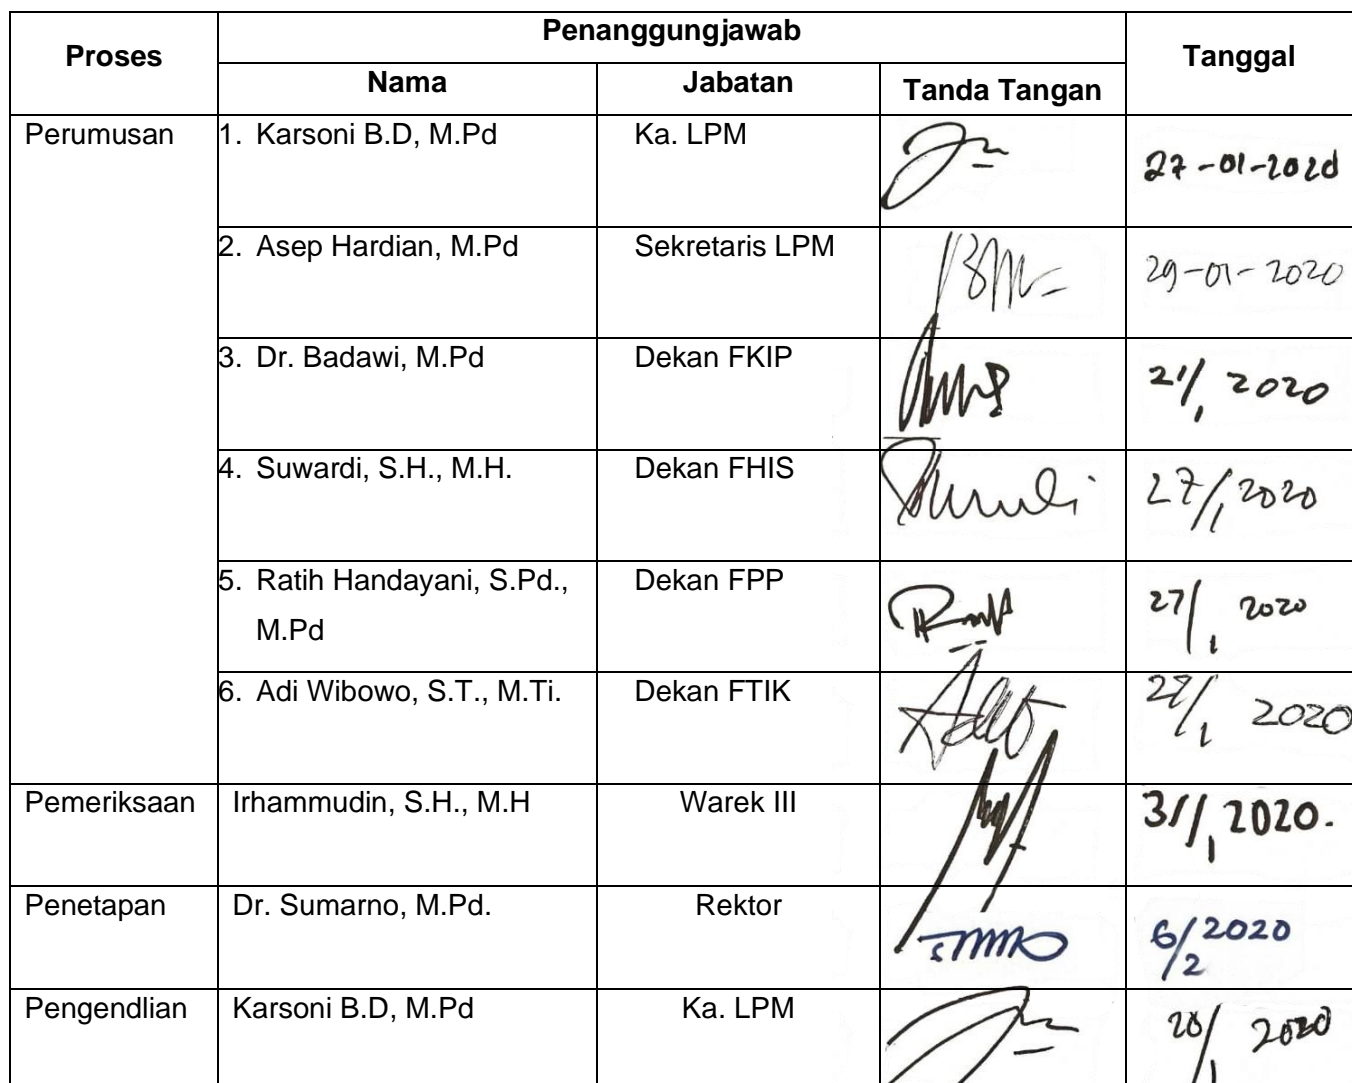 Proses
Penanggungjawab
Tanggal
Nama
Jabatan
Tanda Tangan
Perumusan
1. Karsoni B.D, M.Pd
Ka. LPM
27-01-2020
2. Asep Hardian, M.Pd
Sekretaris LPM
29-01-2020
3. Dr. Badawi, M.Pd
Dekan FKIP
2020
4. Suwardi, S.H., M.H.
Dekan FHIS
27/1 2020
5. Ratih Handayani, S.Pd.,
M.Pd
Dekan FPP
27/1 2020
6. Adi Wibowo, S.T., M.Ti.
Dekan FTIK
2020
Pemeriksaan
Irhammudin, S.H., M.H
Warek III
31/1 2020.
Penetapan
Dr. Sumarno, M.Pd.
Rektor
6/2 2020
Pengendlian
Karsoni B.D, M.Pd
Ka. LPM
2020